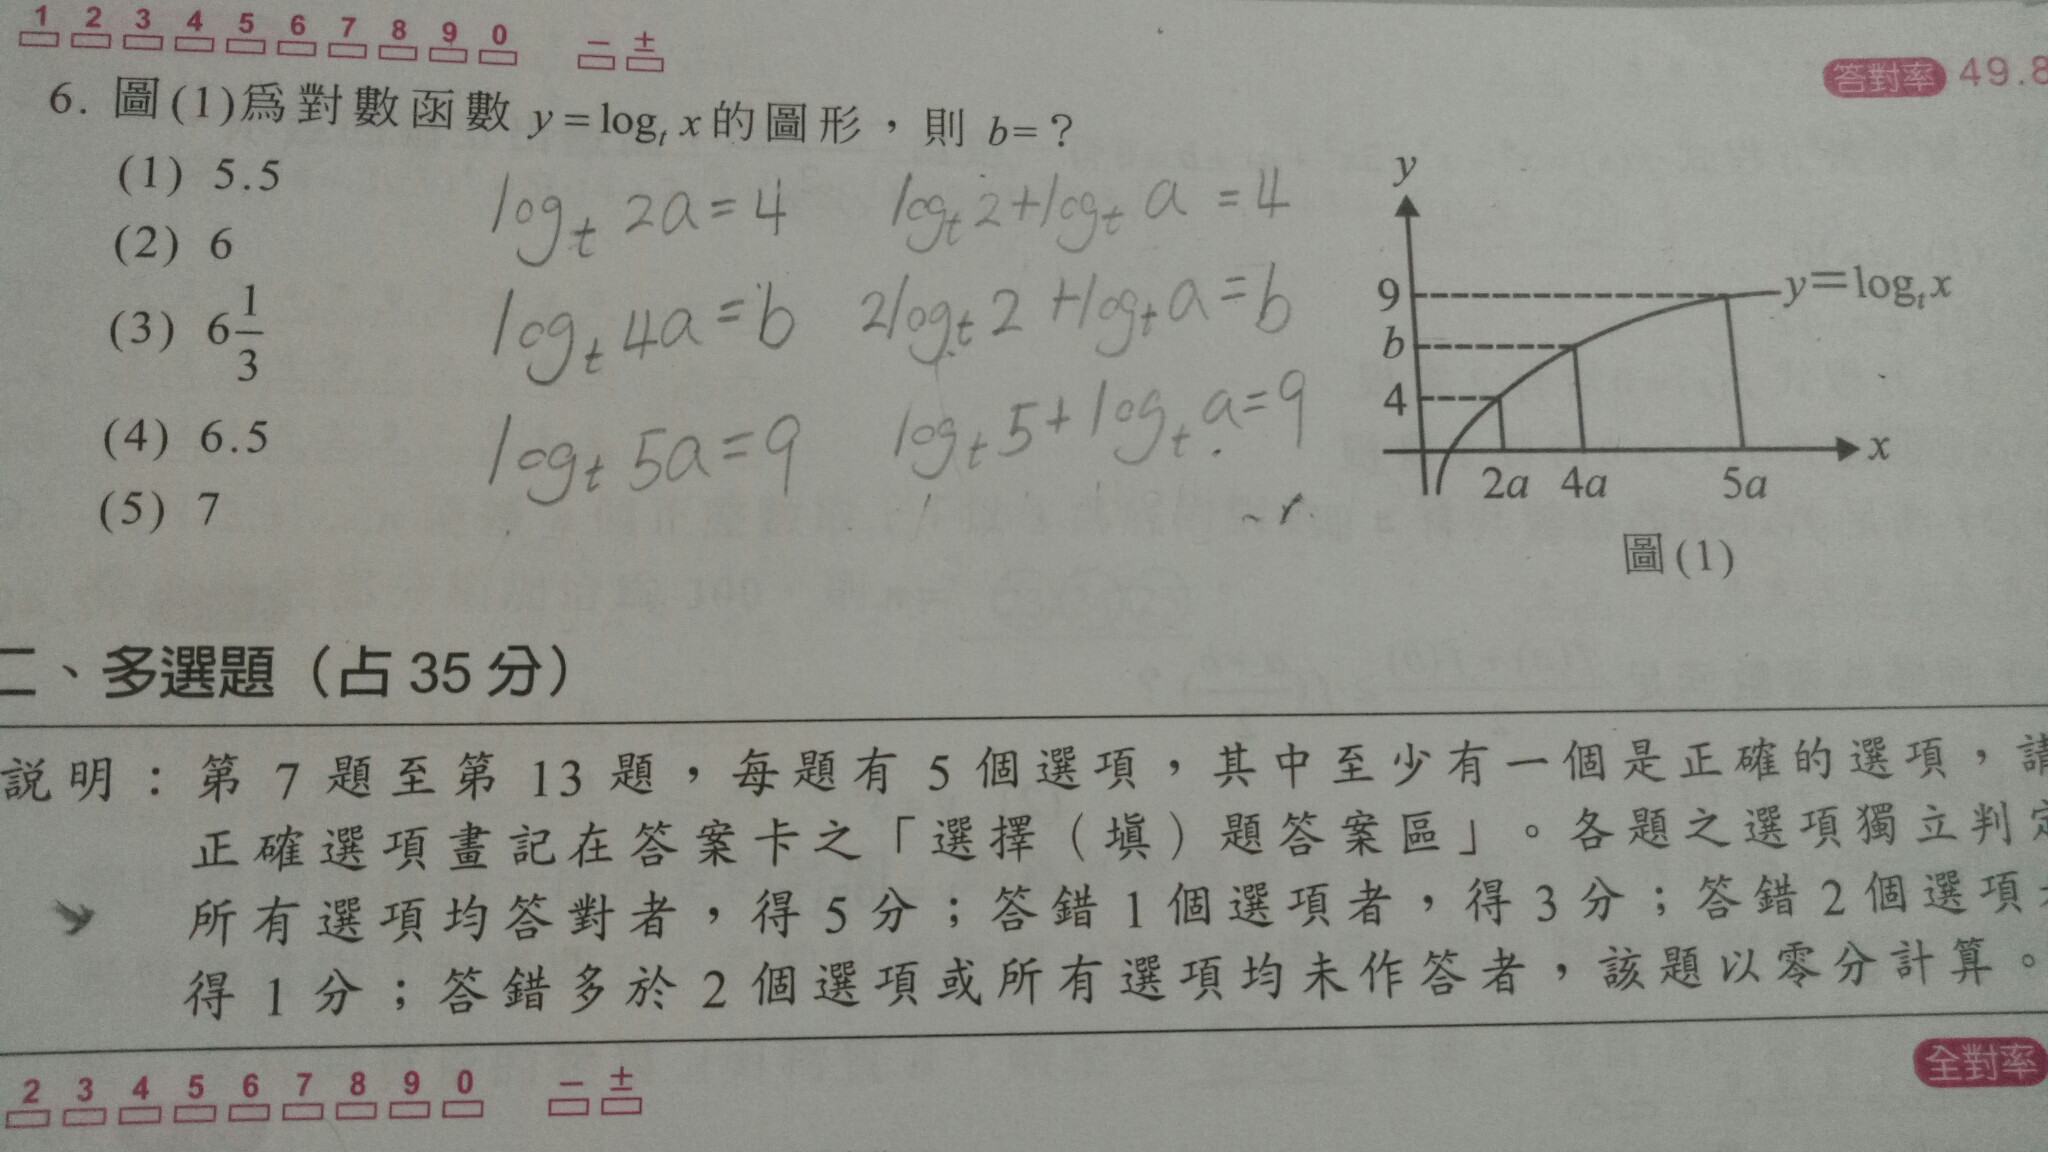 1 2 3 4 5 6 7 8 9 0 − ±
答對率 49.8
6. 圖(1)為對數函數 y=logₜ x的圖形，則 b=？
(1) 5.5
(2) 6
(3) 6 1/3
(4) 6.5
(5) 7
logₜ 2a=4 logₜ2+logₜ a =4
logₜ 4a=b 2logₜ2 +logₜa=b
logₜ 5a=9 logₜ5+logₜa=9
y
9
b
4
y=logₜx
x
2a 4a 5a
圖(1)
二、多選題（占 35 分）
說明：第 7 題至第 13 題，每題有 5 個選項，其中至少有一個是正確的選項，請
正確選項畫記在答案卡之「選擇（填）題答案區」。各題之選項獨立判定
所有選項均答對者，得 5 分；答錯 1 個選項者，得 3 分；答錯 2 個選項
得 1 分；答錯多於 2 個選項或所有選項均未作答者，該題以零分計算。
全對率
2 3 4 5 6 7 8 9 0 − ±